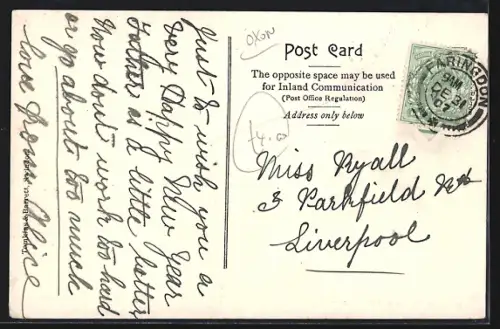 Just to wish you a
very Happy New Year
Father is a little better
Now don't work too hard
or go about too much
love from Alice
OXON
Post Card
The opposite space may be used
for Inland Communication
(Post Office Regulation)
Address only below
FARINGDON
DE 31
07
£4.0
Miss Ryall
3 Parkfield Rd
Liverpool